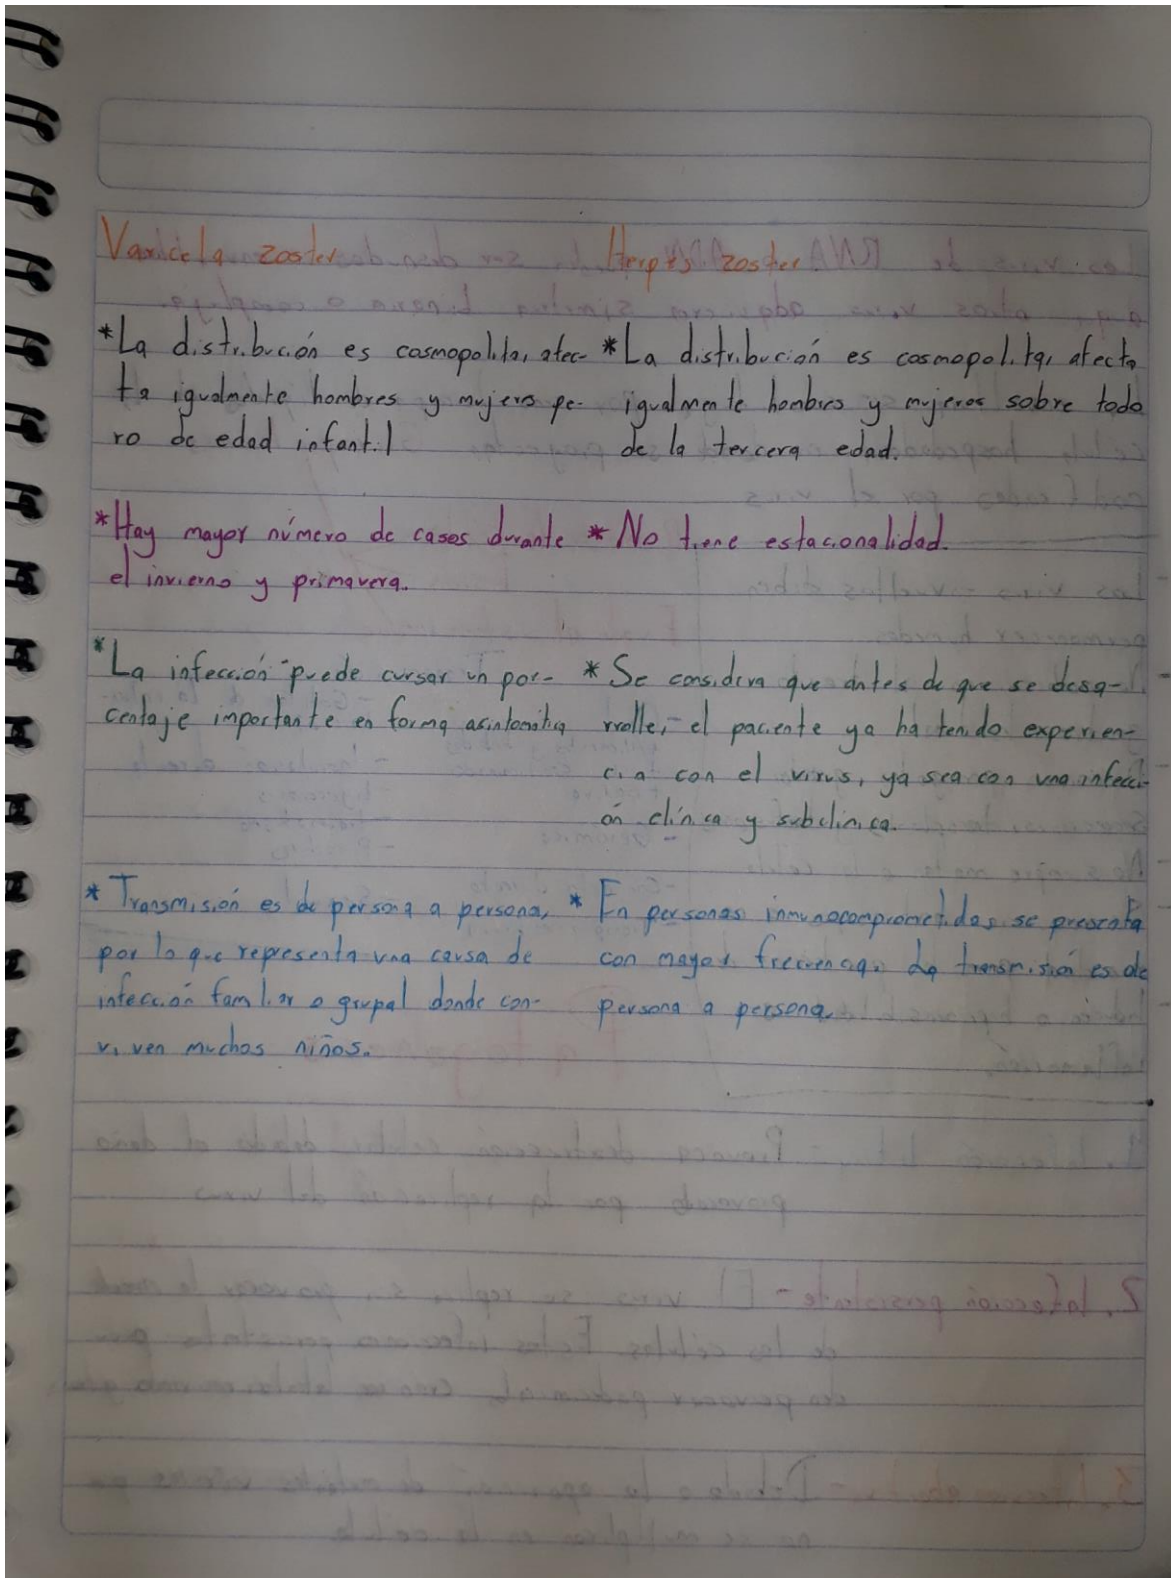 Varicela zoster
*La distribución es cosmopolita, afec-
ta igualmente hombres y mujeres pe-
ro de edad infantil
*Hay mayor número de casos durante
el invierno y primavera.
*La infección puede cursar un por-
centaje importante en forma asintomática
*Transmisión es de persona a persona,
por lo que representa una causa de
infección familiar o grupal donde con-
viven muchos niños.
Herpes zoster
*La distribución es cosmopolita, afecta
igualmente hombres y mujeres sobre todo
de la tercera edad.
*No tiene estacionalidad.
*Se considera que antes de que se desa-
rrolle, el paciente ya ha tenido experien-
cia con el virus, ya sea con una infecci-
ón clínica y subclínica.
*En personas inmunocomprometidas se presenta
con mayor frecuencia. La transmisión es de
persona a persona.